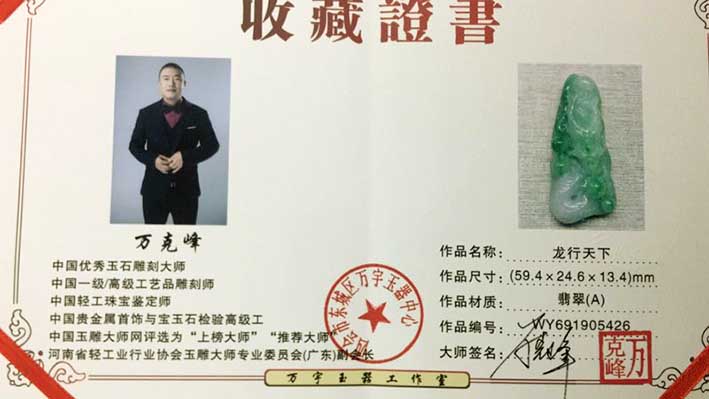 收藏證書
万克峰
中国优秀玉石雕刻大师
中国一级/高级工艺品雕刻师
中国轻工珠宝鉴定师
中国贵金属首饰与宝玉石检验高级工
中国玉雕大师网评选为“上榜大师”“推荐大师”
河南省轻工业行业协会玉雕大师专业委员会(广东)副会长
会市东城区万宇玉器中心
作品名称: 龙行天下
作品尺寸: (59.4×24.6×13.4)mm
作品材质: 翡翠(A)
作品编号: WY691905426
大师签名: 万克峰
万克峰
万宇玉器工作室